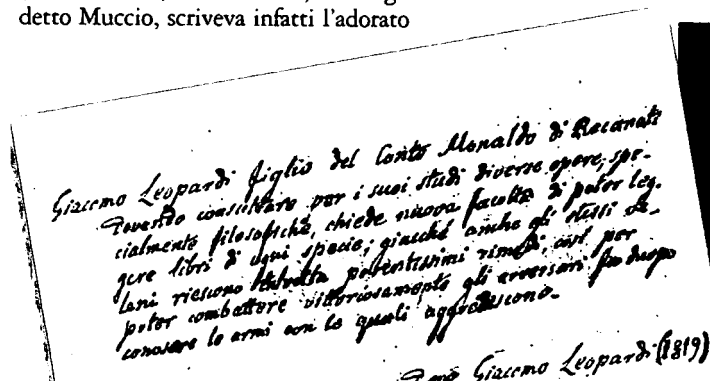 detto Muccio, scriveva infatti l'adorato
Giacomo Leopardi figlio del Conte Monaldo di Recanati
dovendo consultare per i suoi studi diverse opere, spe-
cialmente filosofiche, chiede nuova facoltà di poter leg-
gere libri di ogni specie; giacché anche gli stessi ve-
leni riescono talvolta potentissimi rimedi, così per
poter combattere vittoriosamente gli avversari fa duopo
conoscere le armi con le quali aggrediscono.
Giacomo Leopardi (1819)